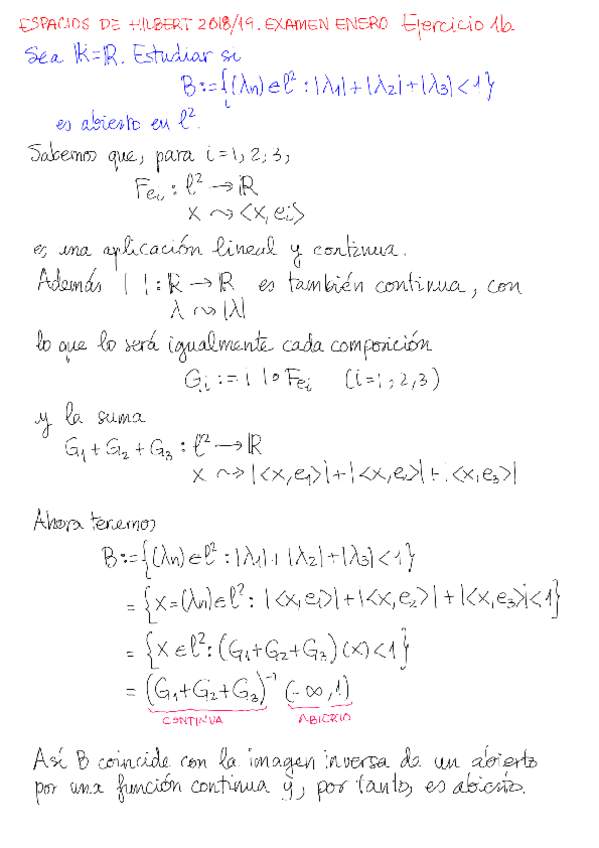 ESPACIOS DE HILBERT 2018/19. EXAMEN ENERO Ejercicio 1b
Sea K=R. Estudiar si
B:={(λn)∈l²: |λ1|+|λ2|+|λ3|<1}
es abierto en l².
Sabemos que, para i=1,2,3,
Fei: l² → R
x ⇝ <x,ei>
es una aplicación lineal y continua.
Además | |: R → R es también continua, con
λ ⇝ |λ|
lo que lo será igualmente cada composición
Gi := | |∘Fei (i=1,2,3)
y la suma
G1+G2+G3: l² → R
x ⇝ |<x,e1>|+|<x,e2>|+|<x,e3>|
Ahora tenemos
B:={(λn)∈l²: |λ1|+|λ2|+|λ3|<1}
= {x=(λn)∈l²: |<x,e1>|+|<x,e2>|+|<x,e3>|<1}
= {x∈l²: (G1+G2+G3)(x)<1}
= (G1+G2+G3)⁻¹ (-∞,1)
CONTINUA ABIERTO
Así B coincide con la imagen inversa de un abierto
por una función continua y, por tanto, es abierto.